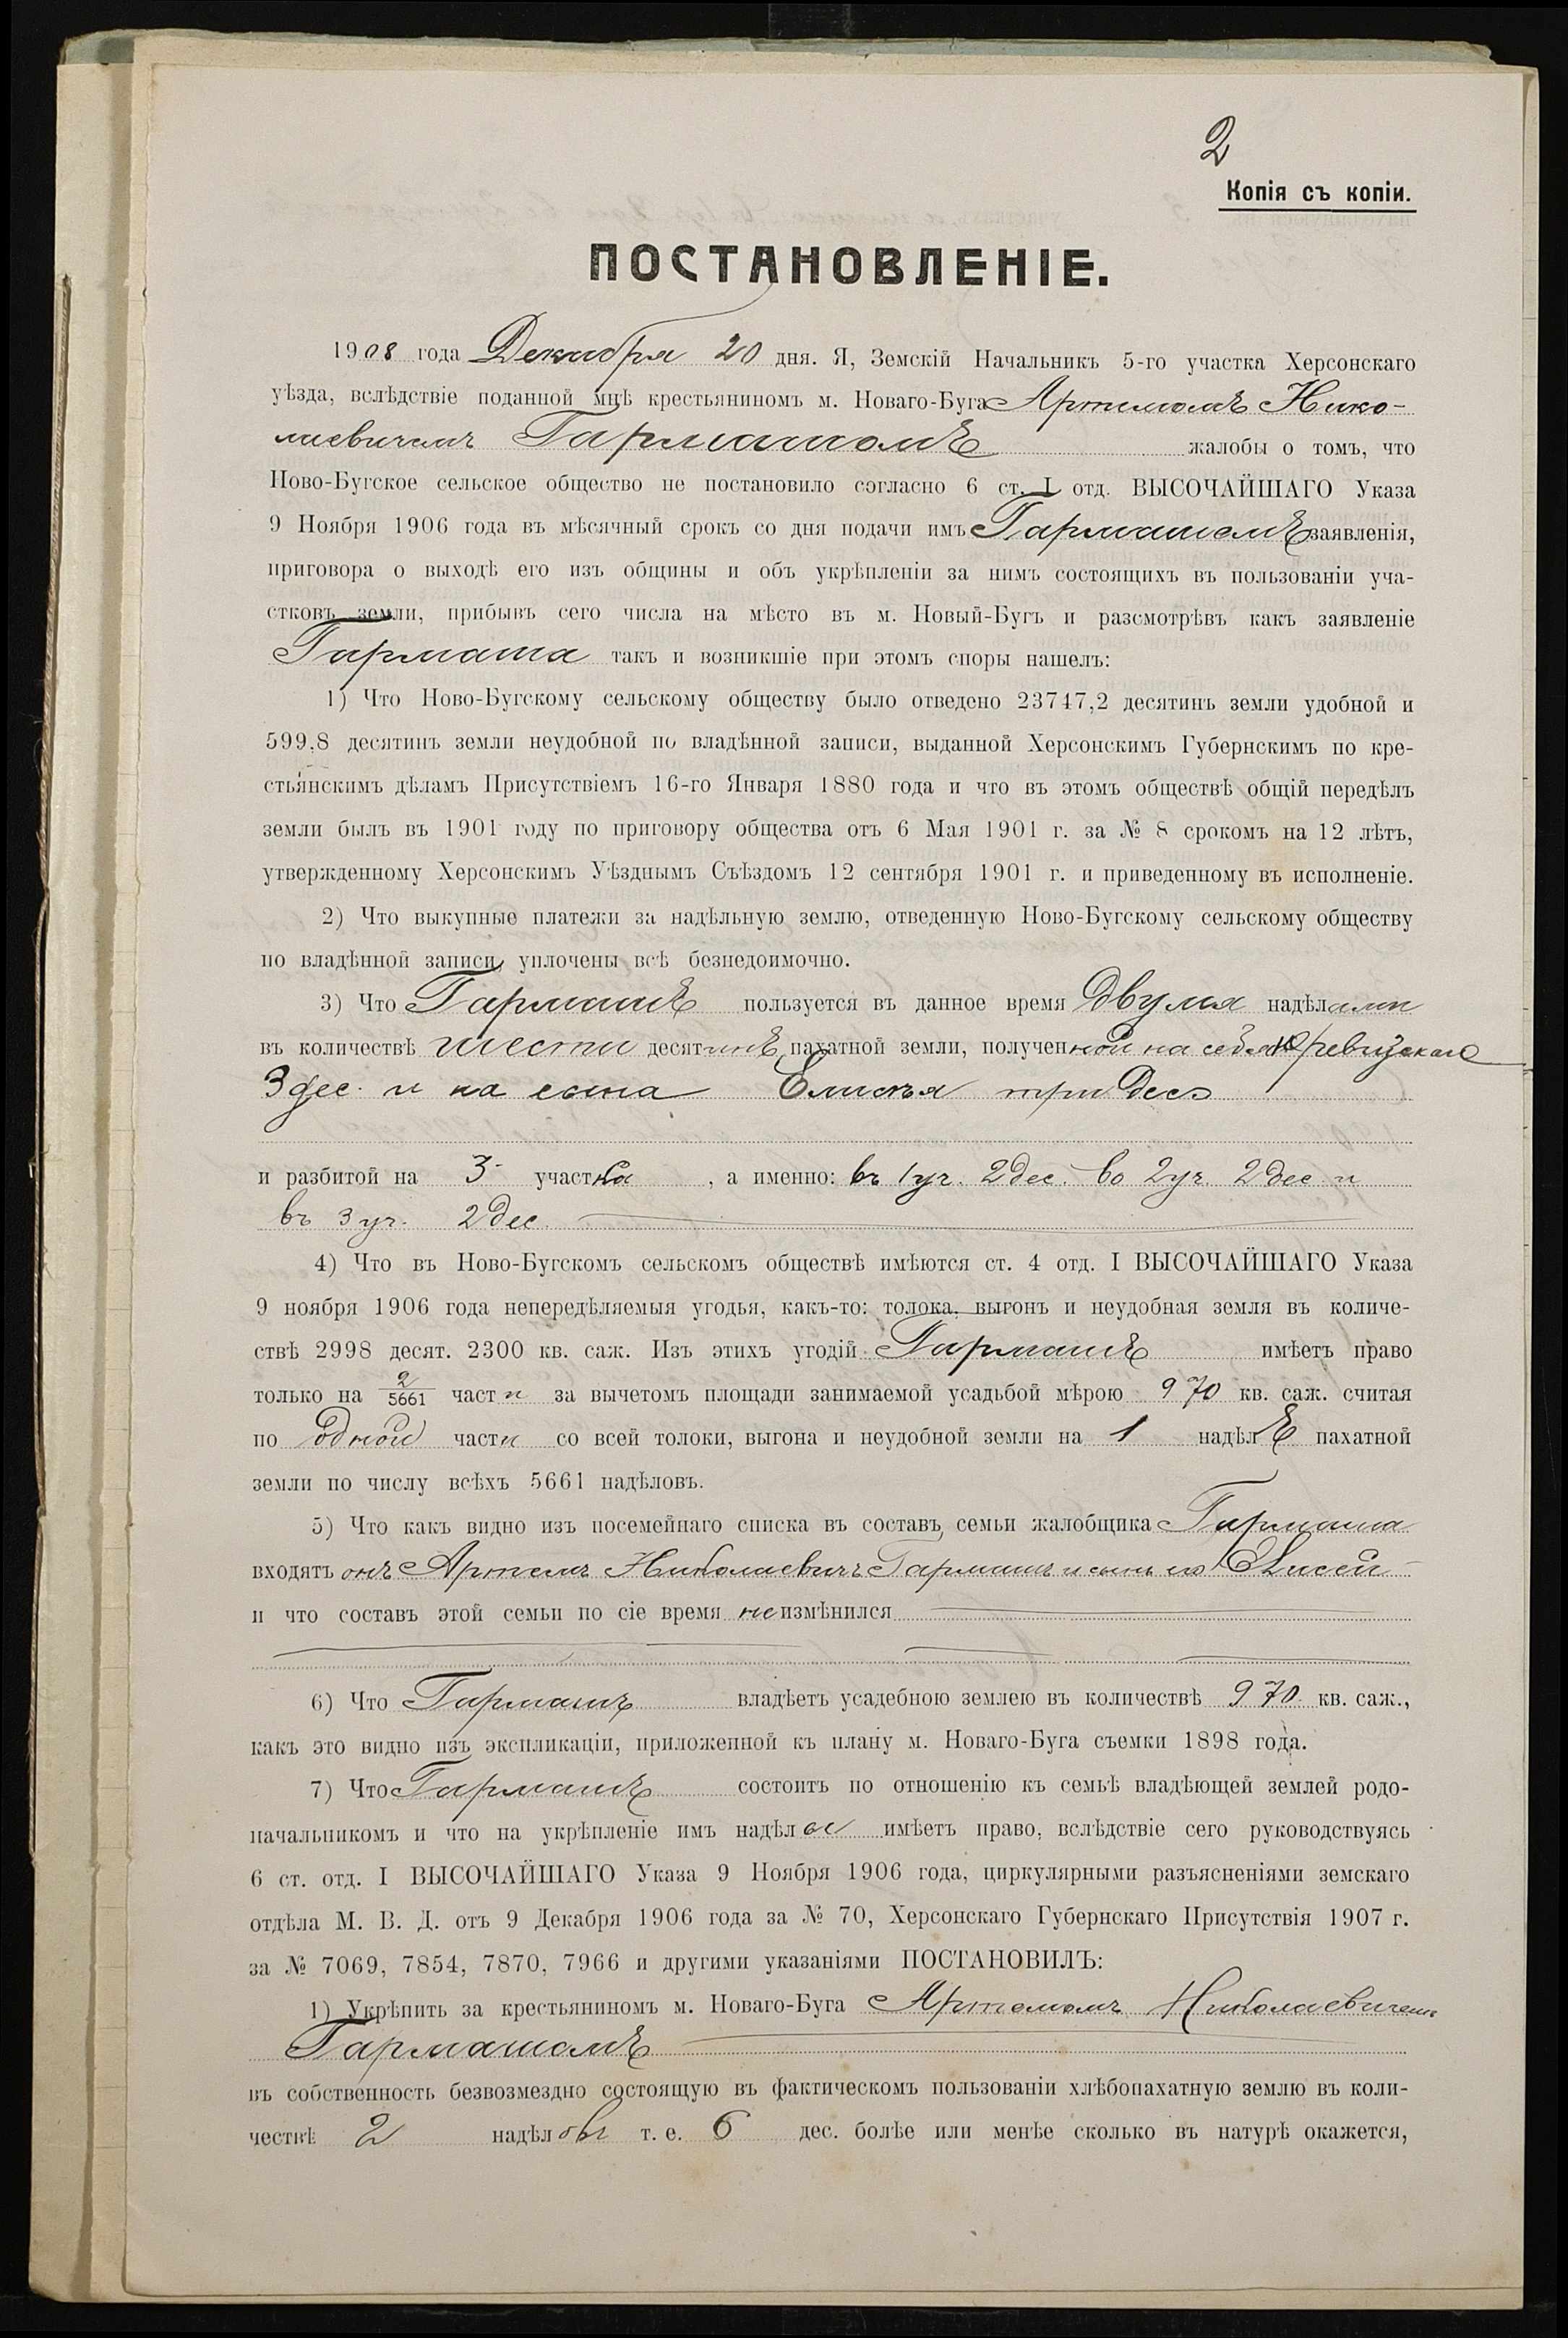 2
Копія съ копіи.
ПОСТАНОВЛЕНІЕ.
1908 года Декабря 20 дня. Я, Земскій Начальникъ 5-го участка Херсонскаго
уѣзда, вслѣдствіе поданной мнѣ крестьяниномъ м. Новаго-Буга Артемомъ Нико-
лаевичемъ Гармашомъ жалобы о томъ, что
Ново-Бугское сельское общество не постановило согласно 6 ст. I отд. ВЫСОЧАЙШАГО Указа
9 Ноября 1906 года въ мѣсячный срокъ со дня подачи имъ Гармашомъ заявленія,
приговора о выходѣ его изъ общины и объ укрѣпленіи за нимъ состоящихъ въ пользованіи уча-
стковъ земли, прибывъ сего числа на мѣсто въ м. Новый-Бугъ и разсмотрѣвъ какъ заявленіе
Гармаша такъ и возникшіе при этомъ споры нашелъ:
1) Что Ново-Бугскому сельскому обществу было отведено 23747,2 десятинъ земли удобной и
599,8 десятинъ земли неудобной по владѣнной записи, выданной Херсонскимъ Губернскимъ по кре-
стьянскимъ дѣламъ Присутствіемъ 16-го Января 1880 года и что въ этомъ обществѣ общій передѣлъ
земли былъ въ 1901 году по приговору общества отъ 6 Мая 1901 г. за № 8 срокомъ на 12 лѣтъ,
утвержденному Херсонскимъ Уѣзднымъ Съѣздомъ 12 сентября 1901 г. и приведенному въ исполненіе.
2) Что выкупные платежи за надѣльную землю, отведенную Ново-Бугскому сельскому обществу
по владѣнной записи, уплочены всѣ безнедоимочно.
3) Что Гармашъ пользуется въ данное время двумя надѣлами
въ количествѣ шести десятинъ пахатной земли, полученной на себя
3 дес. и на сына Елисея три дес
и разбитой на 3 участка, а именно: въ 1 уч. 2 дес. во 2 уч. 2 дес и
въ 3 уч. 2 дес.
4) Что въ Ново-Бугскомъ сельскомъ обществѣ имѣются ст. 4 отд. I ВЫСОЧАЙШАГО Указа
9 ноября 1906 года непередѣляемыя угодья, какъ-то: толока, выгонъ и неудобная земля въ количе-
ствѣ 2998 десят. 2300 кв. саж. Изъ этихъ угодій Гармашъ имѣетъ право
только на 2/5661 части за вычетомъ площади занимаемой усадьбой мѣрою 970 кв. саж. считая
по одной части со всей толоки, выгона и неудобной земли на 1 надѣлъ пахатной
земли по числу всѣхъ 5661 надѣловъ.
5) Что какъ видно изъ посемейнаго списка въ составъ семьи жалобщика Гармаша
входятъ онъ Артемъ Николаевичъ Гармашъ и сынъ его Елисей
и что составъ этой семьи по сіе время не измѣнился
6) Что Гармашъ владѣетъ усадебною землею въ количествѣ 970 кв. саж.,
какъ это видно изъ экспликаціи, приложенной къ плану м. Новаго-Буга съемки 1898 года.
7) Что Гармашъ состоитъ по отношенію къ семьѣ владѣющей землей родо-
начальникомъ и что на укрѣпленіе имъ надѣла имѣетъ право, вслѣдствіе сего руководствуясь
6 ст. отд. I ВЫСОЧАЙШАГО Указа 9 Ноября 1906 года, циркулярными разъясненіями земскаго
отдѣла М. В. Д. отъ 9 Декабря 1906 года за № 70, Херсонскаго Губернскаго Присутствія 1907 г.
за № 7069, 7854, 7870, 7966 и другими указаніями ПОСТАНОВИЛЪ:
1) Укрѣпить за крестьяниномъ м. Новаго-Буга Артемомъ Николаевичемъ
Гармашомъ
въ собственность безвозмездно состоящую въ фактическомъ пользованіи хлѣбопахатную землю въ коли-
чествѣ 2 надѣловъ т. е. 6 дес. болѣе или менѣе сколько въ натурѣ окажется,